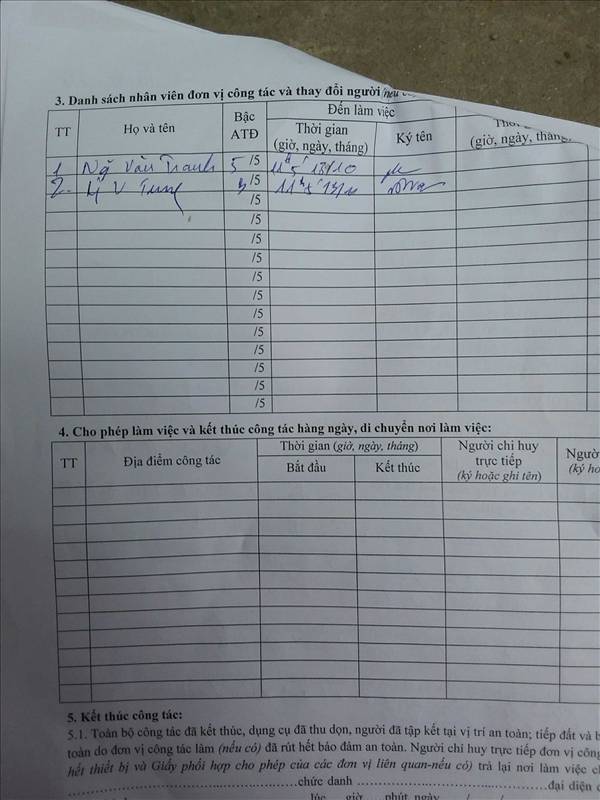 3. Danh sách nhân viên đơn vị công tác và thay đổi người
TT Họ và tên Bậc ATĐ Đến làm việc
Thời gian (giờ, ngày, tháng) Ký tên (giờ, ngày, tháng,
1 Ng Văn Tranh 5 /5 11h5' 13/10
2. Lý V Tung 3 /5
/5
/5
/5
/5
/5
/5
/5
/5
/5
/5
/5
/5
4. Cho phép làm việc và kết thúc công tác hàng ngày, di chuyển nơi làm việc:
TT Địa điểm công tác Thời gian (giờ, ngày, tháng) Người chỉ huy trực tiếp (ký hoặc ghi tên)
Bắt đầu Kết thúc
5. Kết thúc công tác:
5.1. Toàn bộ công tác đã kết thúc, dụng cụ đã thu dọn, người đã tập kết tại vị trí an toàn; tiếp đất và
toàn do đơn vị công tác làm (nếu có) đã rút hết bảo đảm an toàn. Người chỉ huy trực tiếp đơn vị
hết thiết bị và Giấy phối hợp cho phép của các đơn vị liên quan-nếu có) trả lại nơi làm việc
chức danh đại diện
giờ phút ngày